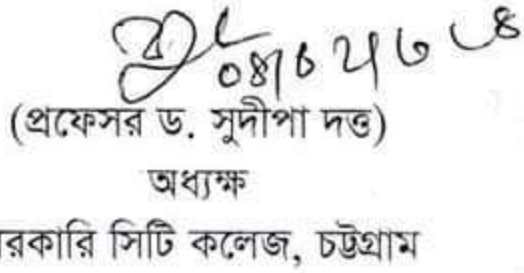 (প্রফেসর ড. সুদীপা দত্ত)
অধ্যক্ষ
রকারি সিটি কলেজ, চট্টগ্রাম